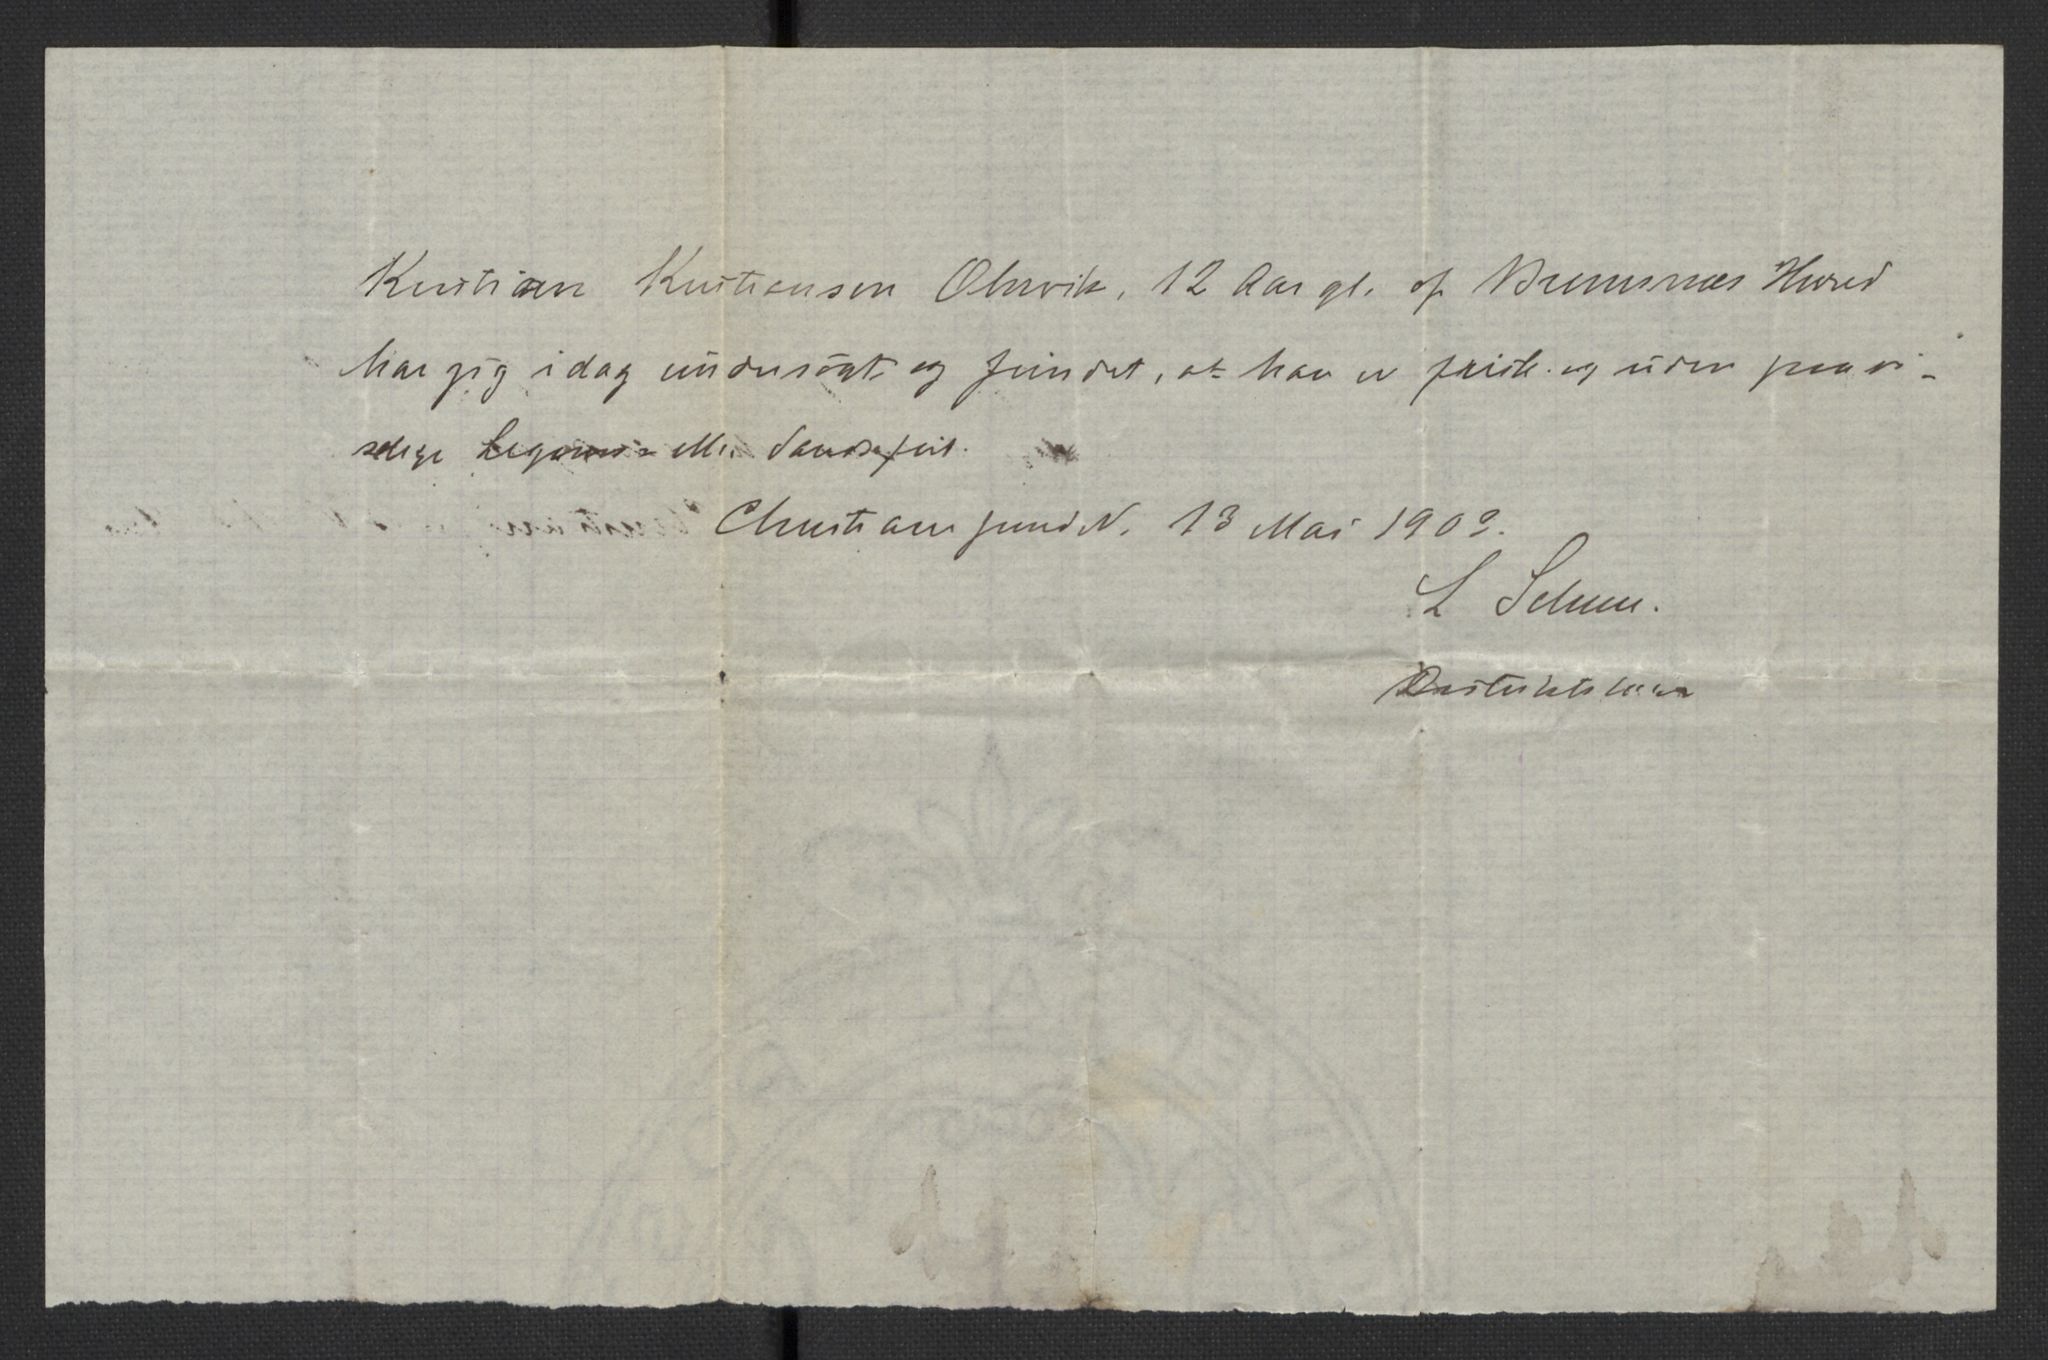 Kristian Kristiansen Olsvik, 12 Aar gl. af Bremsnæs Herred
har jeg idag undersøgt og fundet, at han er frisk og uden paavi-
selige Legems- ell. Sandsefeil.
Christianssund N. 13 Mai 1903.
L
Distriktslæge